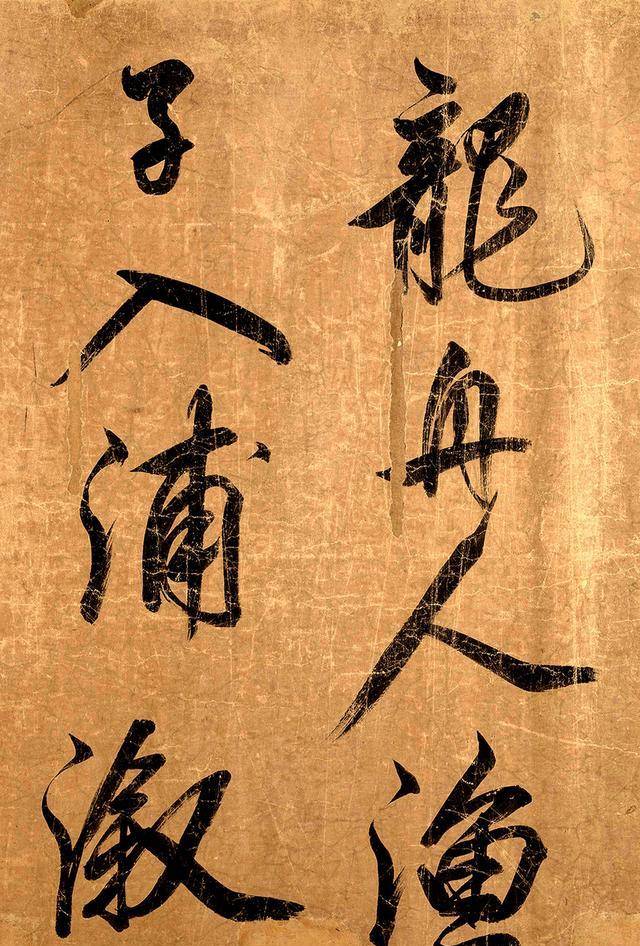 龍舟人漁
子入浦溆